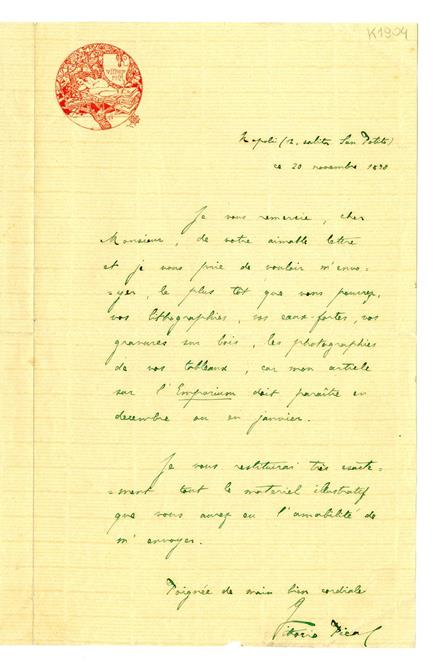 K1904
Napoli (2, salita San Potito)
ce 20 novembre
Je vous remercie, cher
Monsieur, de votre aimable lettre
et je vous prie de vouloir m'envo-
-yer, le plus tôt que vous pourrez,
vos lithographies, vos eaux-fortes, vos
gravures sur bois, les photographies
de vos tableaux, car mon article
sur l'Emporium doit paraître en
decembre ou en janvier.
Je vous restituirai très exacte-
-ment tout le materiel illustratif
que vous aurez eu l'amabilité de
m'envoyer.
Poignée de main bien cordiale
Vittorio Pica